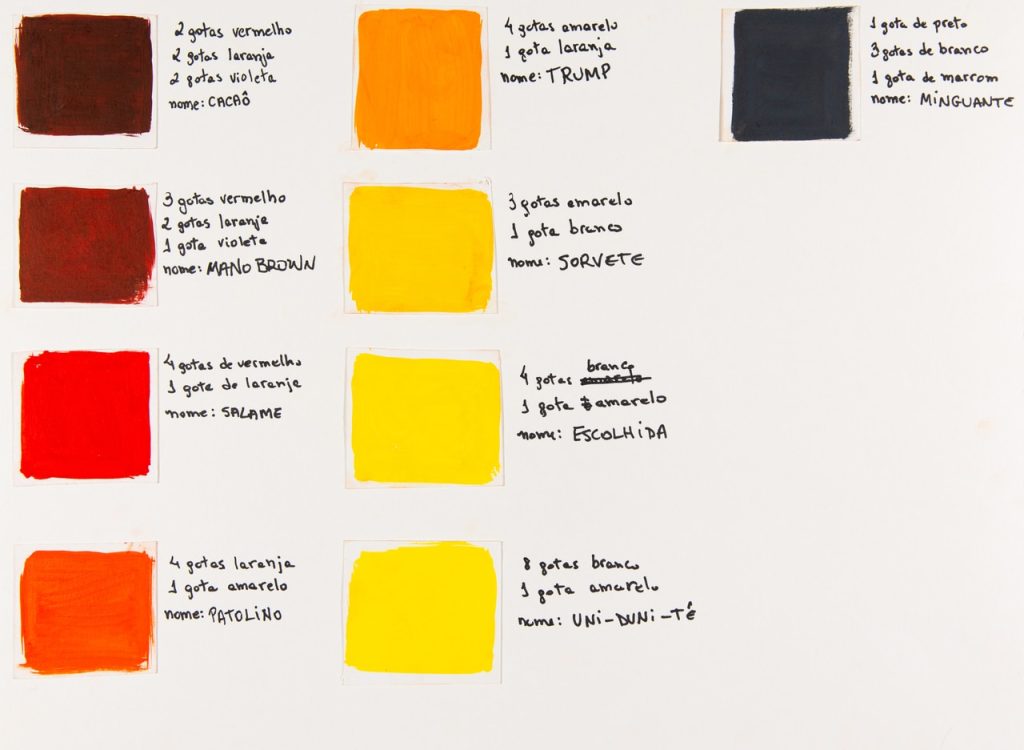 2 gotas vermelho
2 gotas laranja
2 gotas violeta
nome: CACAÔ
3 gotas vermelho
2 gotas laranja
1 gota violeta
nome: MANO BROWN
4 gotas de vermelho
1 gota de laranja
nome: SALAME
4 gotas laranja
1 gota amarelo
nome: PATOLINO
4 gotas amarelo
1 gota laranja
nome: TRUMP
3 gotas amarelo
1 gota branco
nome: SORVETE
4 gotas branco
1 gota amarelo
nome: ESCOLHIDA
8 gotas branco
1 gota amarelo
nome: UNI-DUNI-TÊ
1 gota de preto
3 gotas de branco
1 gota de marrom
nome: MINGUANTE